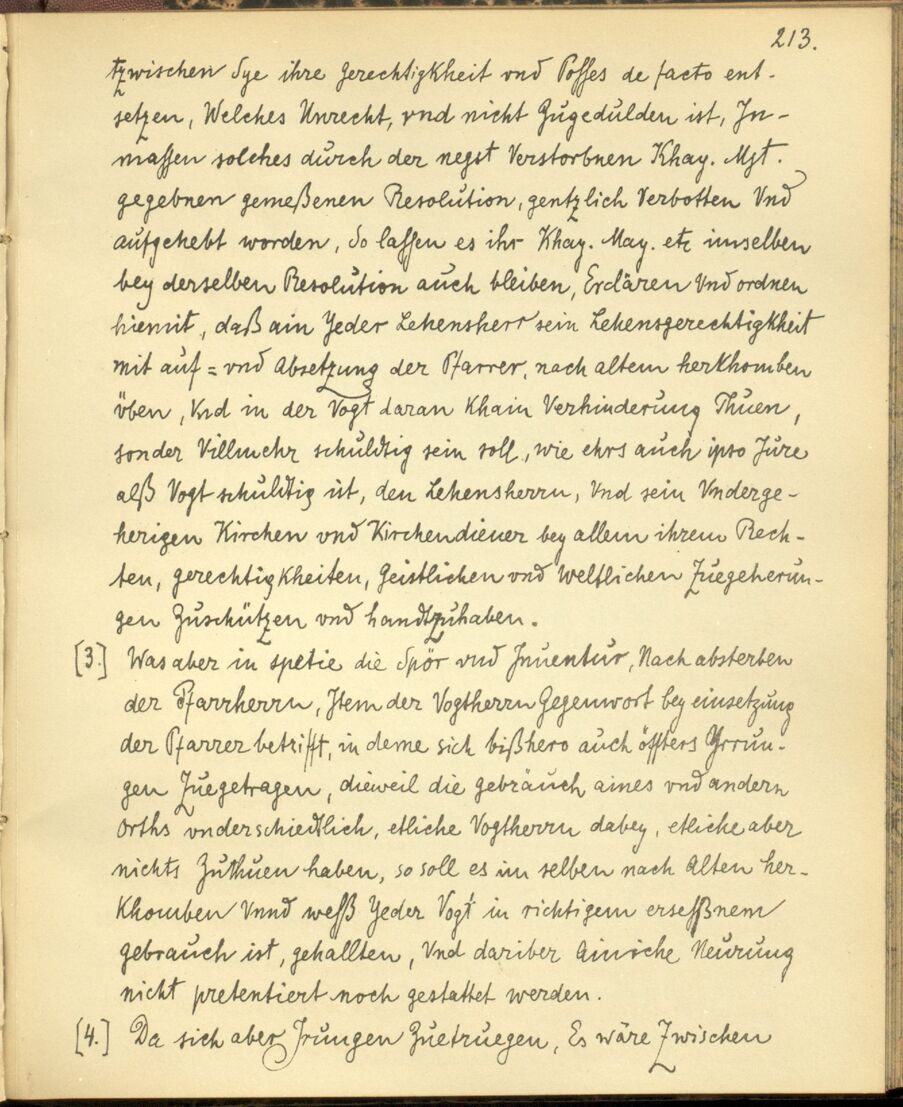 213.
tzwischen Sye ihre gerechtigkheit vnd Posses de facto ent-
setzen, Welches Unrecht, vnd nicht Zugedulden ist, In-
massen solches durch der negst Verstorbnen Khay. Mgt.
gegebnen gemeßenen Resolution, gentzlich Verbotten Vnd
aufgehebt worden, So lassen es ihr Khay. May. etc imselben
bey derselben Resolution auch bleiben, Erclären Vnd ordnen
hiemit, daß ain Yeder Lehensherr sein Lehensgerechtigkheit
mit auf= vnd Absetzung der Pfarrer, nach altem herkhomben
üben, Vnd in der Vogt daran Khain Verhinderung Thuen,
sonder Villmehr schuldtig sein soll, wie ehrs auch ipso Jure
alß Vogt schuldtig ist, den Lehensherrn, Vnd sein Vnderge-
herigen Kirchen vnd Kirchendiener bey allem ihrem Rech-
ten, gerechtigkheiten, Geistlichen vnd Weltlichen Zuegeherun-
gen Zuschützen vnd handtzuhaben.
[3.] Was aber in spetie die Spör vnd Inuentur, Nach absterben
der Pfarrherrn, Item der Vogtherrn Gegenwort bey einsetzung
der Pfarrer betrifft, in deme sich bißhero auch öffters Yrrun-
gen Zuegetragen, dieweil die gebräuch aines vnd andern
Orths vnderschiedtlich, etliche Vogtherrn dabey, etliche aber
nichts Zuthuen haben, so soll es im selben nach Alten her-
Khomben Vnnd weß Yeder Vogt in richtigem erseßnem
gebrauch ist, gehallten, Vnd dariber Ainiche Neurung
nicht pretentiert noch gestattet werden.
[4.] Da sich aber Irungen Zuetruegen, Es wäre Zwischen